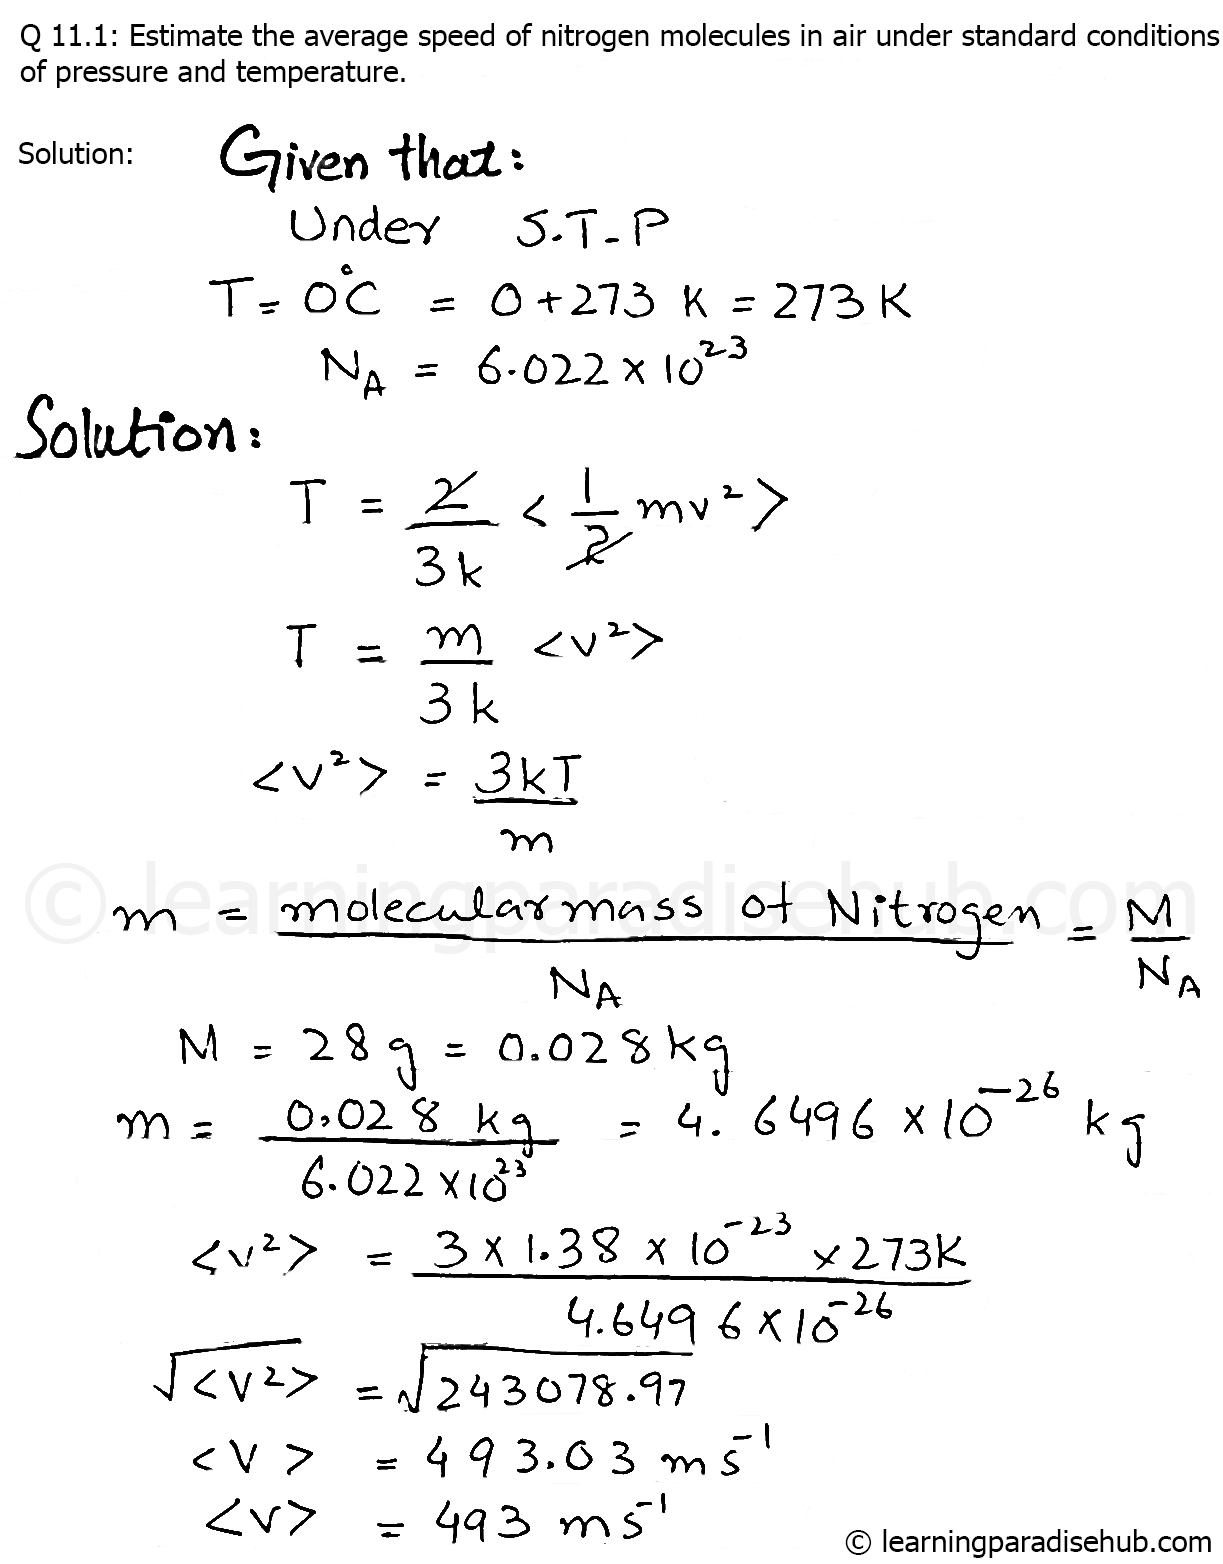 Q 11.1: Estimate the average speed of nitrogen molecules in air under standard conditions
of pressure and temperature.
Solution: Given that:
Under S.T.P
T = 0°C = 0 + 273 K = 273 K
N_A = 6.022 × 10^23
Solution:
T = 2/3k < 1/2 mv² >
T = m/3k <v²>
<v²> = 3kT/m
© learningparadisehub.com
m = molecular mass of Nitrogen/N_A = M/N_A
M = 28 g = 0.028 kg
m = 0.028 kg/6.022 × 10^23 = 4.6496 × 10^-26 kg
<v²> = 3 × 1.38 × 10^-23 × 273K/4.6496 × 10^-26
√<v²> = √243078.97
<v> = 493.03 ms^-1
<v> = 493 ms^-1
© learningparadisehub.com